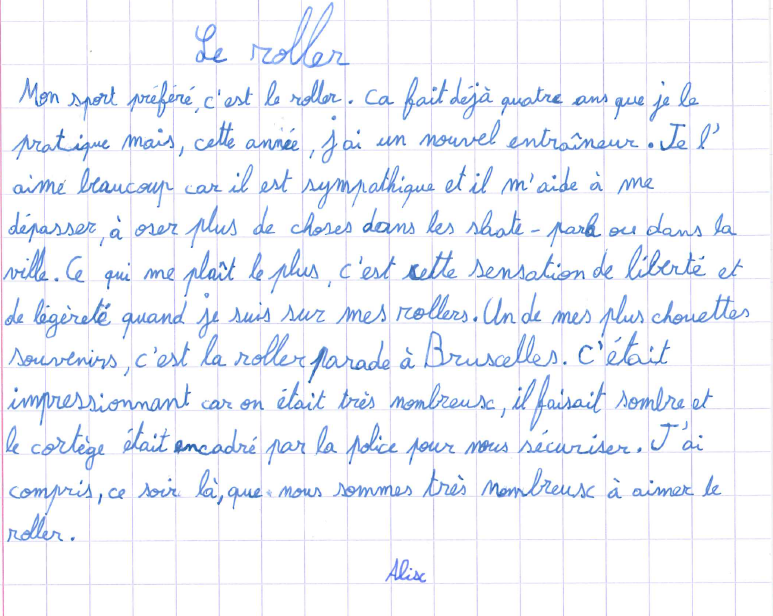 Le roller
Mon sport préféré, c'est le roller. Ca fait déjà quatre ans que je le
pratique mais, cette année, j'ai un nouvel entraîneur. Je l'
aime beaucoup car il est sympathique et il m'aide à me
dépasser, à oser plus de choses dans les skate-park ou dans la
ville. Ce qui me plaît le plus, c'est cette sensation de liberté et
de légèreté quand je suis sur mes rollers. Un de mes plus chouettes
souvenirs, c'est la roller parade à Bruxelles. C'était
impressionnant car on était très nombreux, il faisait sombre et
le cortège était encadré par la police pour nous sécuriser. J'ai
compris, ce soir là, que nous sommes très nombreux à aimer le
roller.
Alix